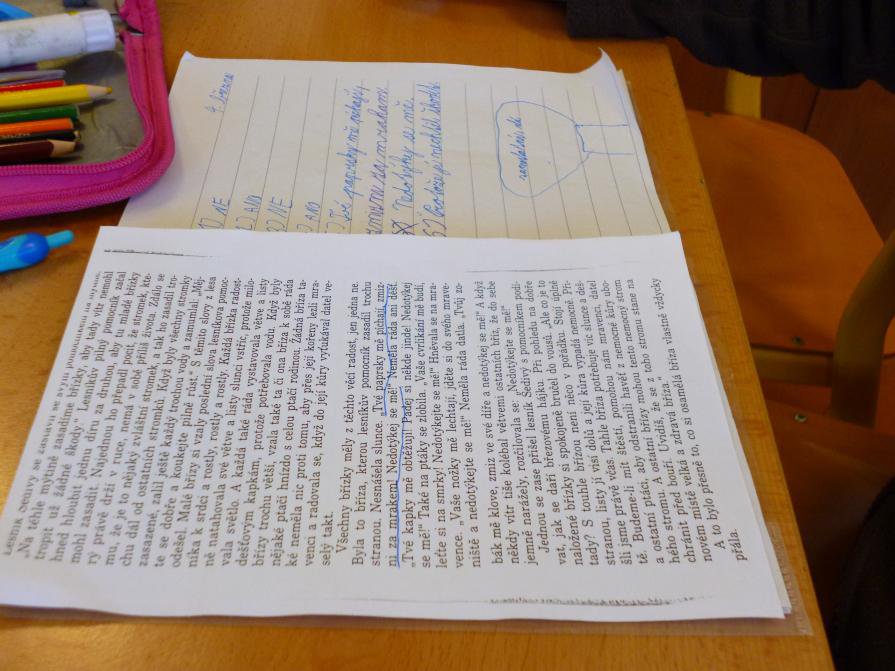 Lesník Šedivý se zastavil se svým pomocníkem na mýtině.
„Na téhle mýtině zasadíme břízky, aby tady vítr nemohl
tropit už žádné škody.“ Lesníkův pilný pomocník začal
hned hloubit jednu díru za druhou, aby tu mladé břízky
mohl zasadit. Najednou ho přepadl pocit, že stromek, kte-
rý právě drží v ruce, nemá v sobě příliš života. Zdálo se
mu, že je to nějaký zvláštní stromek, a tak ho zasadil tro-
chu dál od ostatních stromků. Když byly všechny stromky
zasazené, zalil ještě každý trochou vody a zamumlal: „Měj-
te se dobře a koukejte pilně růst.“ S těmito slovy z lesa
odešel. Malé břízy si vzaly poslední slova lesníkova pomoc-
níka k srdci a rostly, rostly a rostly. Každá břízka radost-
ně natahovala své větve a listy slunci vstříc, protože milo-
vala světlo. A každá také ráda vystavovala větve a listy
dešťovým kapkám, protože potřebovala vodu. Když byly
břízy trochu větší, vzala také ta či ona bříza k sobě ráda
nějaké ptačí hnízdo s celou ptačí rodinou. Žádná bříza ta-
ké neměla nic proti tomu, aby přes její kořeny lezli mra-
venci a radovala se, když do její kůry vyťukával datel ve-
selý takt.
Všechny břízky měly z těchto věcí radost, jen jedna ne.
Byla to bříza, kterou lesníkův pomocník zasadil trochu
stranou. Nesnášela slunce. „Tvé paprsky mě píchají, zmiz-
ni za mrakem! Nedotýkej se mě!“ Neměla ráda ani déšť.
„Tvé kapky mě obtěžují. Padej si někde jinde! Nedotýkej
se mě!“ Také na ptáky se zlobila. „Vaše cvrlikání mě budí,
leťte si na smrky! Nedotýkejte se mě!“ Hněvala se na mra-
vence. „Vaše nožky mě lechtají, jděte si do svého mrave-
niště a nedotýkejte se mě!“ Neměla ráda datla. „Tvůj zo-
bák mě klove, zmiz ve své díře a nedotýkej se mě!“ A když
někdy vítr tiše kolébal větvemi ostatních bříz, že do sebe
jemně narážely, rozčilovala se: „Nedotýkejte se mě!“
Jednou se zase přišel lesník Šedivý s pomocníkem podí-
vat, jak se daří březovému hájku. Při pohledu na dobře
naložené břízky si spokojeně bručel do vousů. „Ale co je to
tady? S touhle břízou není něco v pořádku. Stojí úplně
stranou, listy jí visí dolů a její kůra vypadá nemocně. Při-
šli jsme právě včas. Tahle bříza potřebuje víc slunce a deš-
tě. Budeme-li mít štěstí, pomohou nám mravenci, datel
a ostatní ptáci, aby odstranili havěť z nemocné kůry ubo-
hého stromu. A ostatní břízy mohou tento nemocný strom
chránit před bouří. Uvidíš, že se z toho stromu stane na
novém místě velká a zdravá bříza.“
A to bylo přesně to, co si osamělá bříza vlastně vždycky
přála.
4. března
1) NE
2) ANO
3) NE
) ANO
Tvé paprsky mě píchají
zmizni za mrakem.
Nedotýkej se mě.